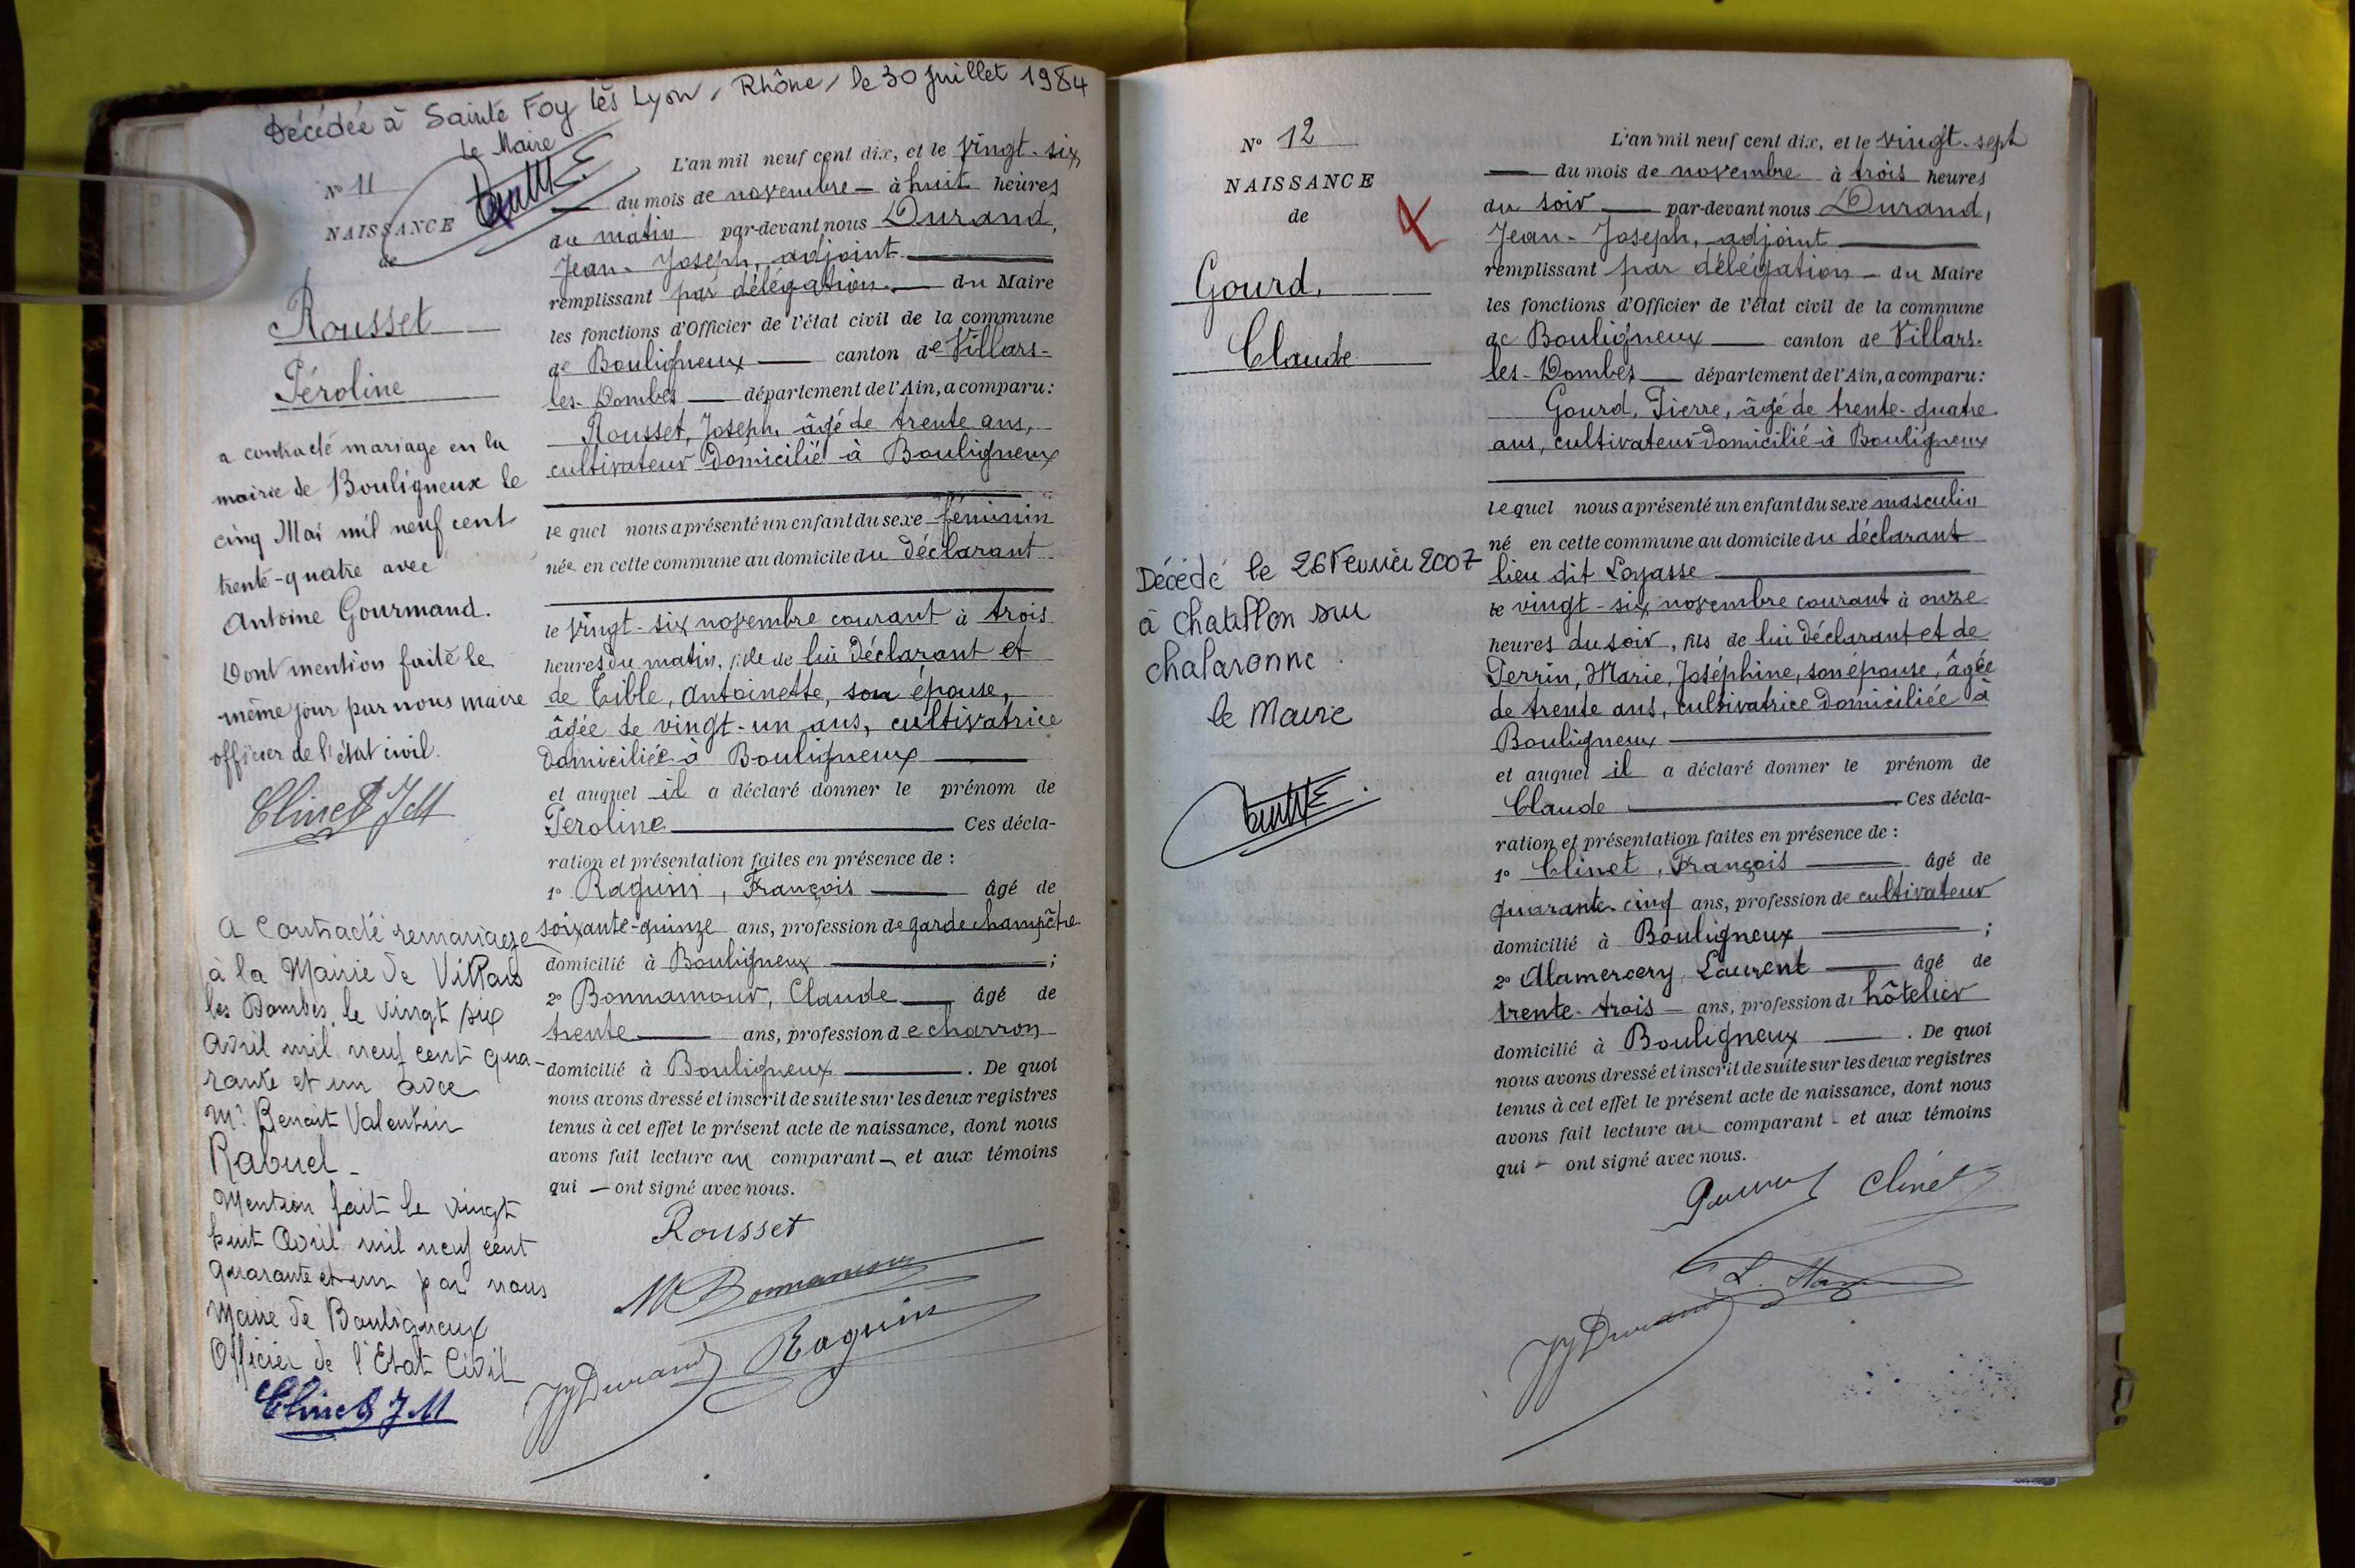 Décédée à Sainte Foy lès Lyon, Rhône, le 30 juillet 1984
le Maire
N° 11
NAISSANCE
de
Rousset
Péroline
a contracté mariage en la
mairie de Bouligneux le
cinq Mai mil neuf cent
trente-quatre avec
Antoine Gourmand.
Dont mention faite le
même jour par nous maire
officier de l'état civil.
Clinet JM
A Contracté remariage
à la Mairie de Villars
les Dombes, le vingt six
Avril mil neuf cent qua-
rante et un avec
Mr Benoit Valentin
Rabuel -
Mention fait le vingt
huit Avril mil neuf cent
quarante et un par nous
Maire de Bouligneux
Officier de l'Etat Civil
Clinet J.M
L'an mil neuf cent dix, et le vingt-six
du mois de novembre — à huit heures
du matin par-devant nous Durand,
Jean-Joseph, adjoint
remplissant par délégation — du Maire
les fonctions d'Officier de l'état civil de la commune
de Bouligneux — canton de Villars-
les-Dombes — département de l'Ain, a comparu :
Rousset, Joseph, âgé de trente ans,
cultivateur domicilié à Bouligneux
lequel nous a présenté un enfant du sexe féminin
née en cette commune au domicile du déclarant
le vingt-six novembre courant à trois
heures du matin, fille de lui déclarant et
de Tible, Antoinette, son épouse,
âgée de vingt-un ans, cultivatrice
domiciliée à Bouligneux
et auquel il a déclaré donner le prénom de
Péroline — Ces décla-
ration et présentation faites en présence de :
1° Raguin, François — âgé de
soixante-quinze ans, profession de garde champêtre
domicilié à Bouligneux — ;
2° Bonnamour, Claude — âgé de
trente — ans, profession de charron
domicilié à Bouligneux — . De quoi
nous avons dressé et inscrit de suite sur les deux registres
tenus à cet effet le présent acte de naissance, dont nous
avons fait lecture au comparant — et aux témoins
qui — ont signé avec nous.
Rousset
Bonnamour
JJ Durand Raguin
N° 12
NAISSANCE
de
Gourd,
Claude
Décédé le 26 Février 2007
à Chatillon sur
Chalaronne
le Maire
L'an mil neuf cent dix, et le vingt-sept
— du mois de novembre à trois heures
du soir — par-devant nous Durand,
Jean-Joseph, adjoint
remplissant par délégation — du Maire
les fonctions d'Officier de l'état civil de la commune
de Bouligneux — canton de Villars-
les-Dombes — département de l'Ain, a comparu :
Gourd, Pierre, âgé de trente-quatre
ans, cultivateur domicilié à Bouligneux
lequel nous a présenté un enfant du sexe masculin
né en cette commune au domicile du déclarant
lieu dit Loyasse
le vingt-six novembre courant à onze
heures du soir, fils de lui déclarant et de
Perrin, Marie, Joséphine, son épouse, âgée
de trente ans, cultivatrice domiciliée à
Bouligneux
et auquel il a déclaré donner le prénom de
Claude — Ces décla-
ration et présentation faites en présence de :
1° Clinet, François — âgé de
quarante-cinq ans, profession de cultivateur
domicilié à Bouligneux — ;
2° Alamercery, Laurent — âgé de
trente-trois — ans, profession d' hôtelier
domicilié à Bouligneux — . De quoi
nous avons dressé et inscrit de suite sur les deux registres
tenus à cet effet le présent acte de naissance, dont nous
avons fait lecture au comparant - et aux témoins
qui — ont signé avec nous.
Clinet
JJ Durand